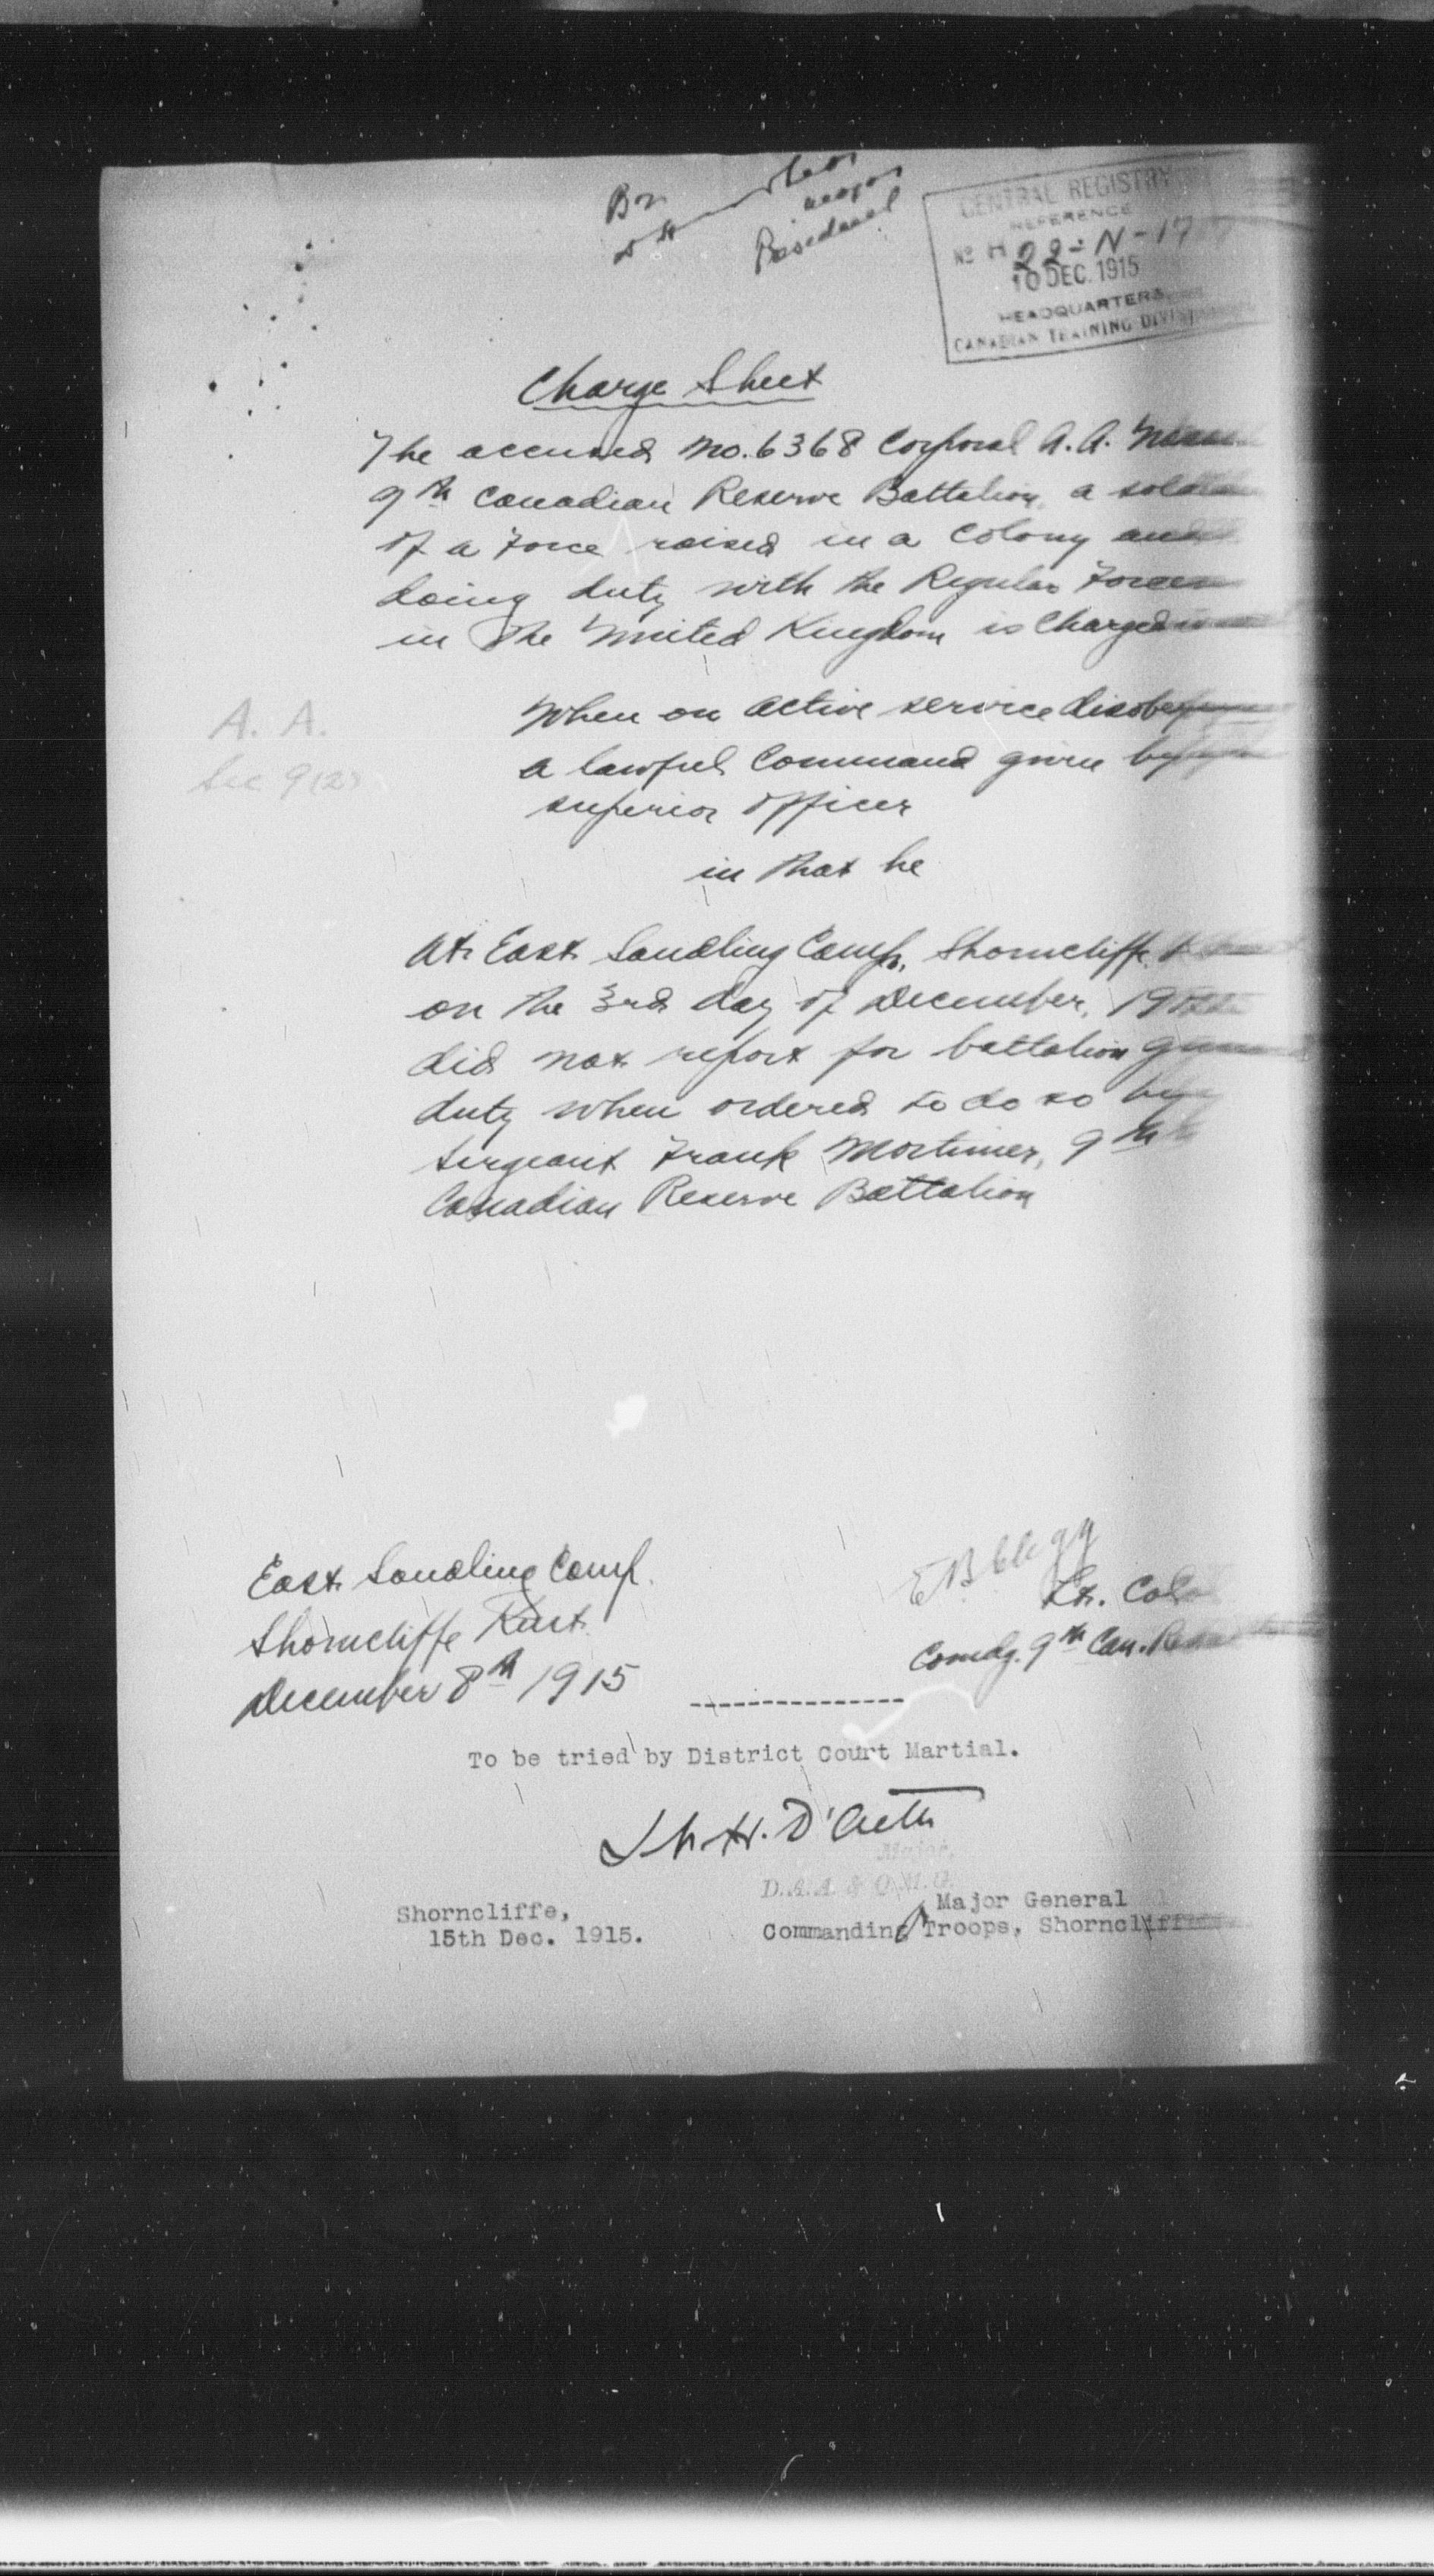 Bn
CENTRAL REGISTRY
REFERENCE
No H 22-N-17
10 DEC. 1915
HEADQUARTERS
CANADIAN TRAINING DIVISI
Charge Sheet
The accused No. 6368 Corporal A. A.
9th Canadian Reserve Battalion, a soldier
of a Force raised in a Colony and
doing duty with the Regular Forces
in the United Kingdom is charged
A. A.
Sec 9(2)
When on active service disobeying
a lawful Command given by
superior officer
in that he
At East Sandling Camp, Shorncliffe
on the 3rd day of December, 1915
did not report for battalion
duty when ordered to do so by
Sergeant Frank Mortimer, 9th
Canadian Reserve Battalion
East Sandling Camp.
Shorncliffe Kent.
December 8th 1915
E B Clegg
Lt. Col
Comdg. 9th Can. Res
---------------
To be tried by District Court Martial.
Major,
D.A.A. & Q.M.G.
Shorncliffe,
15th Dec. 1915.
Major General
Commanding Troops, Shorncliffe